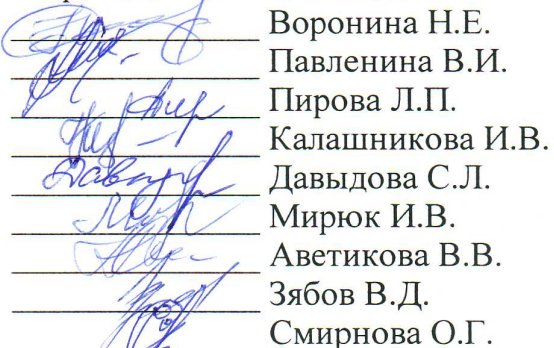 Воронина Н.Е.
Павленина В.И.
Пирова Л.П.
Калашникова И.В.
Давыдова С.Л.
Мирюк И.В.
Аветикова В.В.
Зябов В.Д.
Смирнова О.Г.